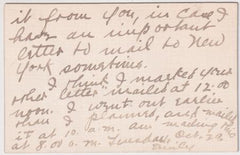 it from you, in case I
had an important
letter to mail to New
York sometime.
I think I marked your
other letter "mailed at 12.00
noon. I went out earlier
than I planned, and mailed
it at 10. a.m. am mailing this
at 8.00 a.m. Tuesday, Oct. 23,
Emily